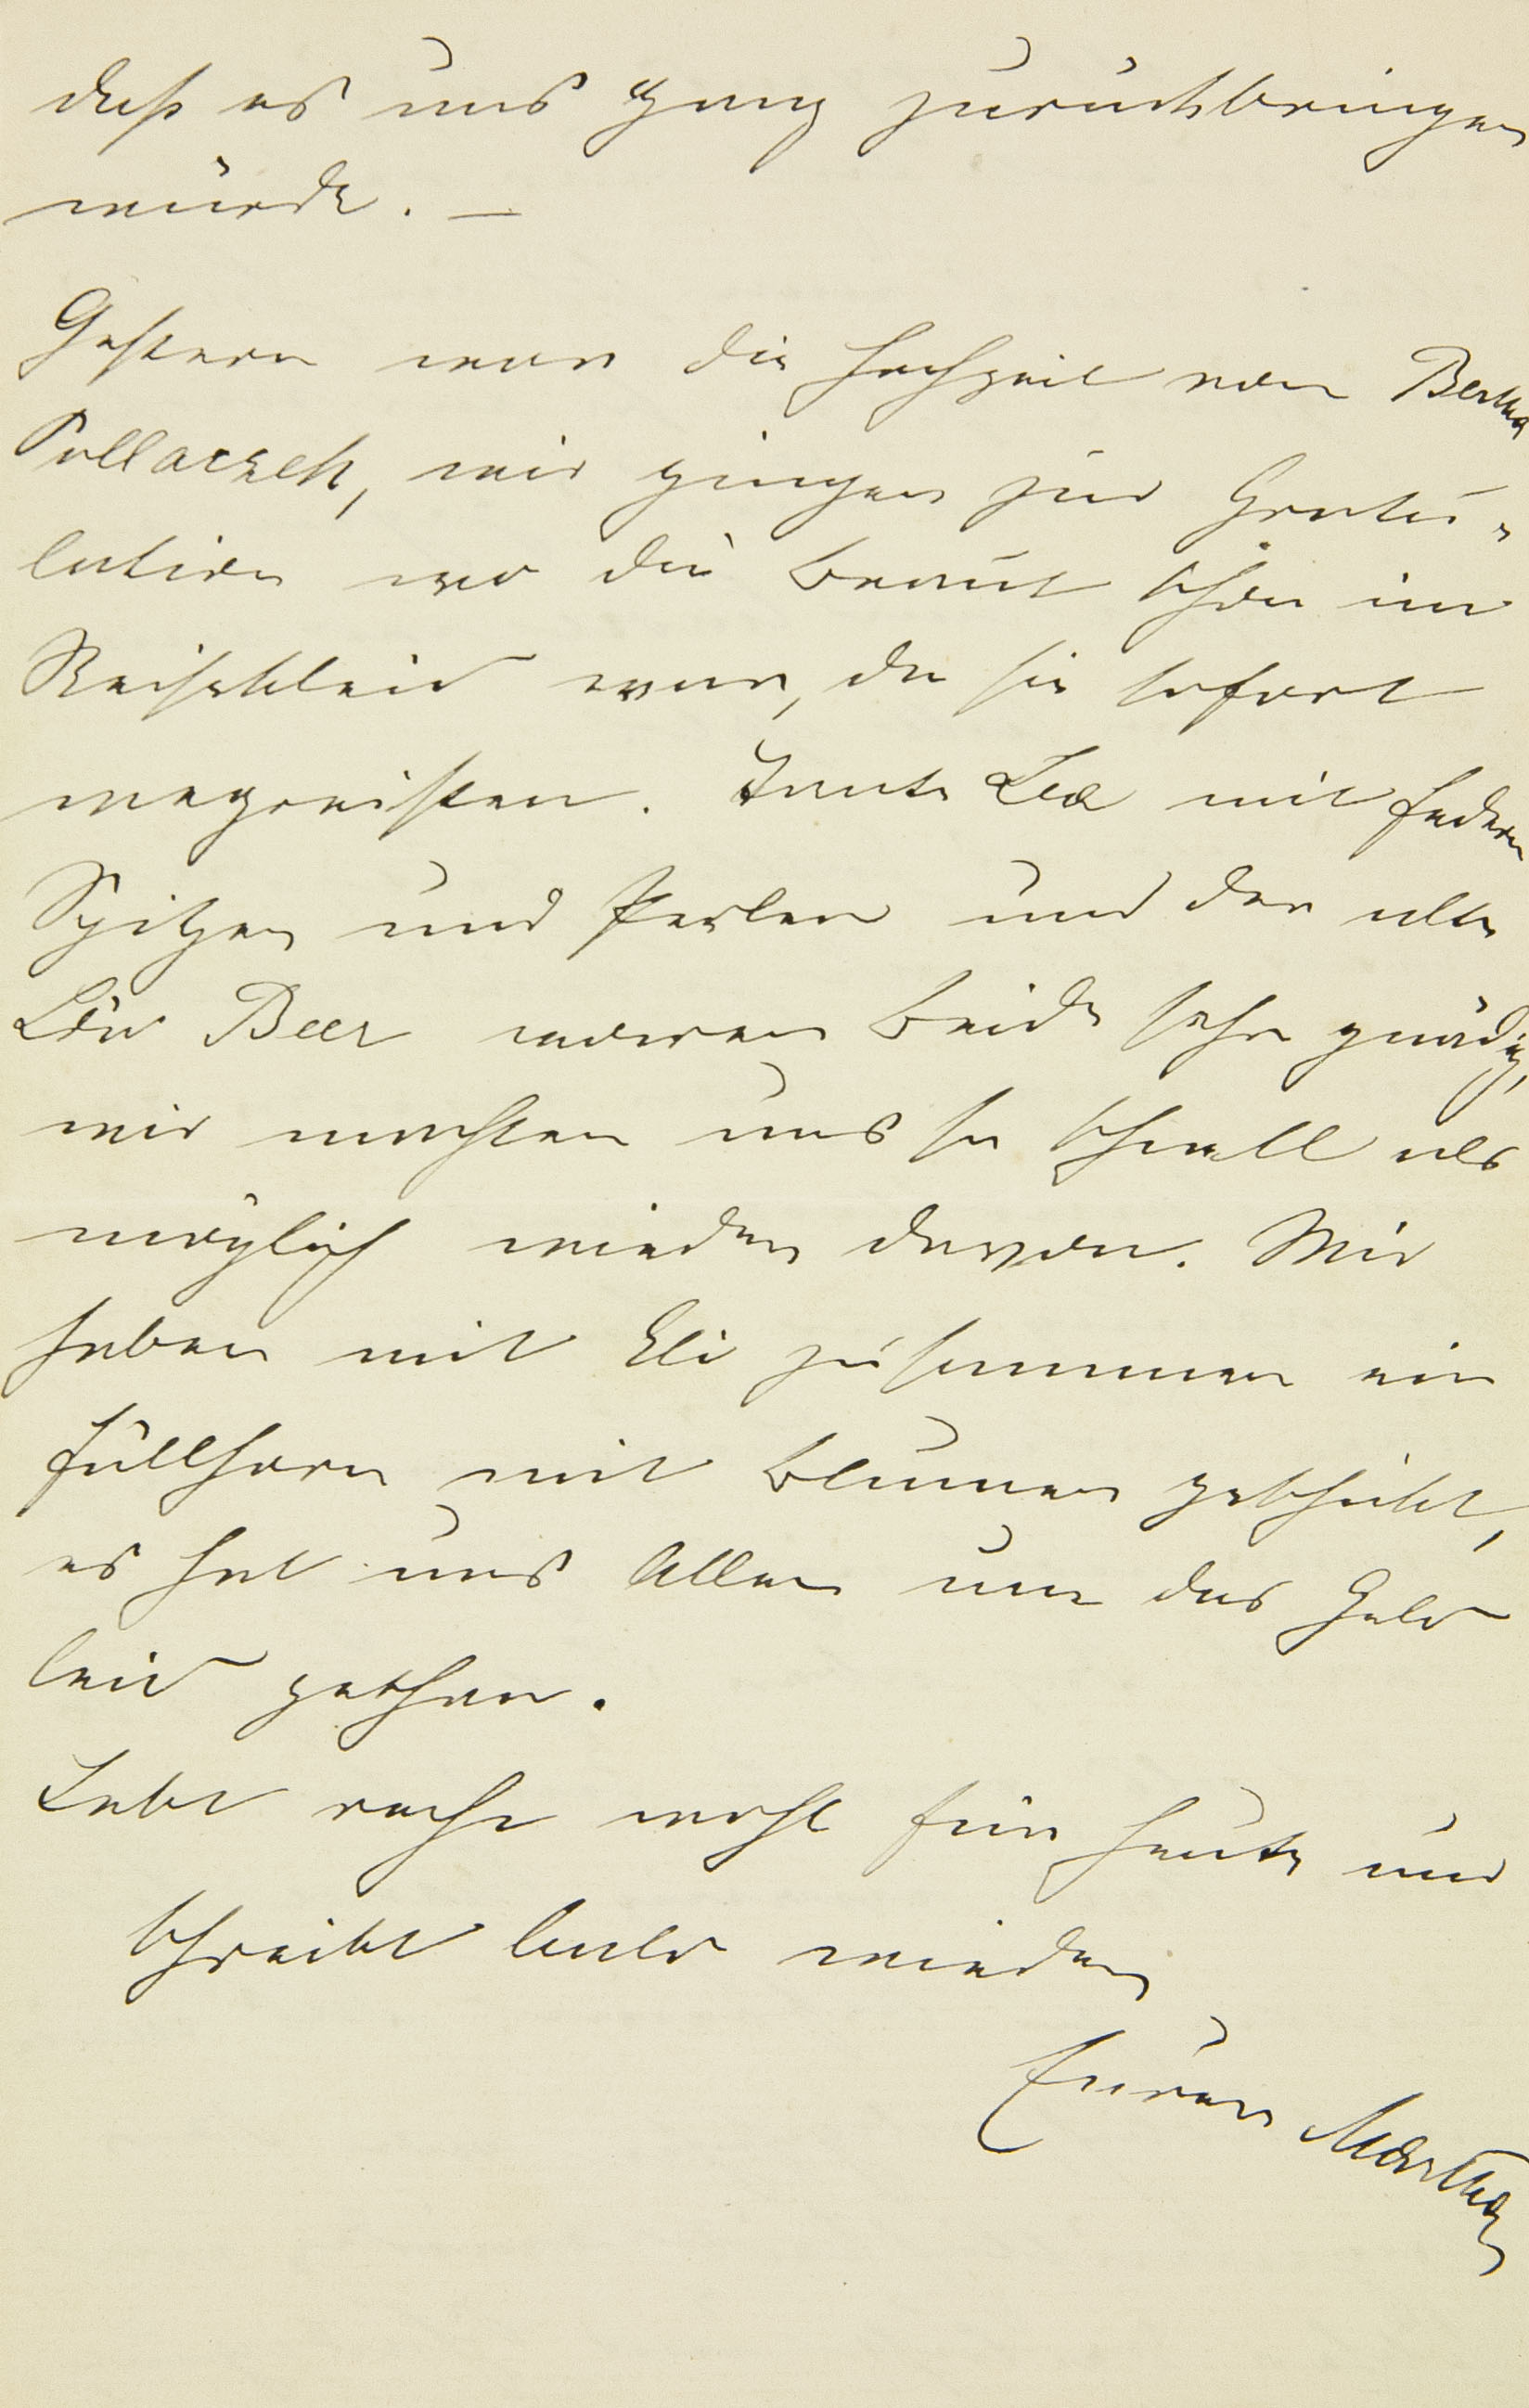 daß es uns ganz zurückbringen
würde. —
Gestern war die Hochzeit von Bertha
Pollaczek, wir gingen zur Gratu-
lation wo die Braut schon im
Reisekleid war, da sie sofort
wegreisten. Tante Lea mit Federn
Spitzen und Perlen und der alte
Löw Beer waren beide sehr gnädig,
wir machten uns so schnell als
möglich wieder davon. Wir
haben mit Eli zusammen ein
Füllhorn mit Blumen geschickt,
es hat uns Allen um das Geld
leid gethan.
Lebt recht wohl für heute und
schreibt bald wieder
Eurer Martha